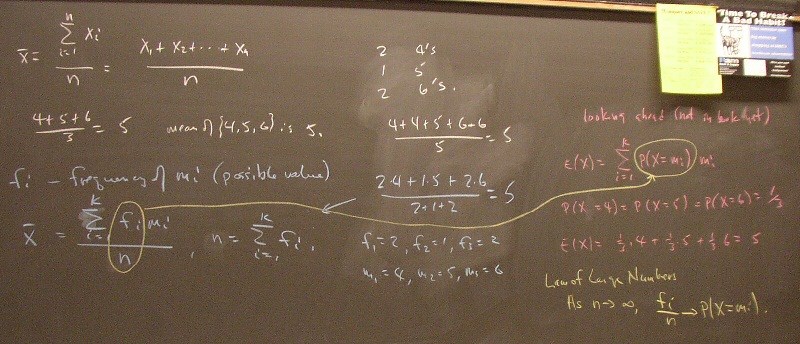 x̄ = (∑_{i=1}^{n} x_i)/n = (x_1 + x_2 + ... + x_n)/n
(4+5+6)/3 = 5 mean of {4,5,6} is 5.
f_i - frequency of m_i (possible value)
x̄ = (∑_{i=1}^{k} f_i m_i)/n , n = ∑_{i=1}^{k} f_i .
2 4's
1 5
2 6's.
(4+4+5+6+6)/5 = 5
(2·4+1·5+2·6)/(2+1+2) = 5
f_1=2, f_2=1, f_3=2
m_1=4, m_2=5, m_3=6
looking ahead (not in book yet)
E(X) = ∑_{i=1}^{k} P(X=m_i) m_i
P(X=4) = P(X=5) = P(X=6) = 1/3
E(X) = 1/3·4 + 1/3·5 + 1/3·6 = 5
Law of Large Numbers
As n→∞, f_i/n → P(X=m_i).
Time To Break
A Bad Habit?